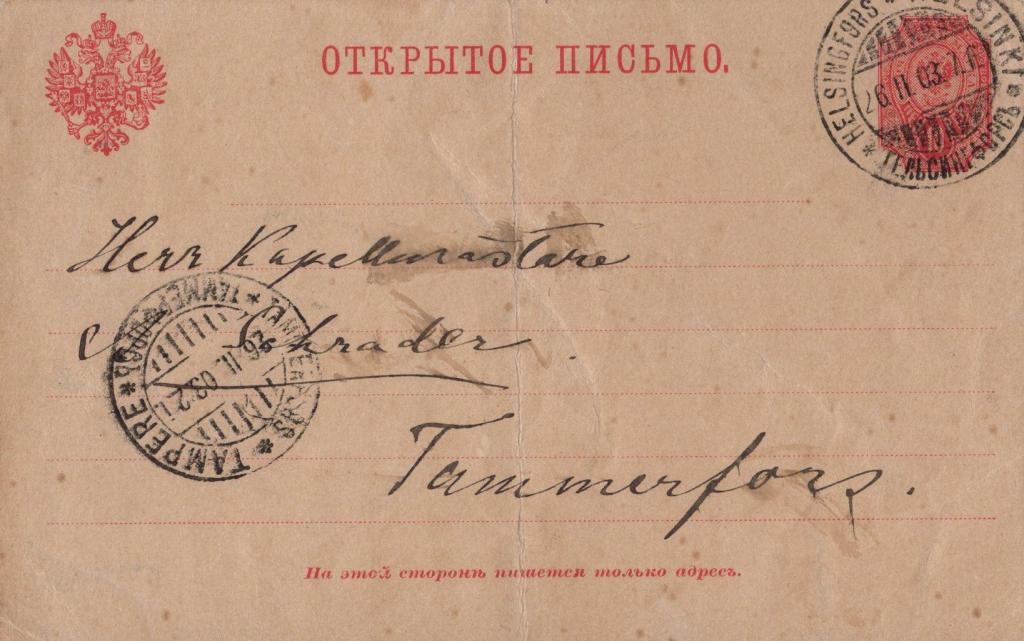 ОТКРЫТОЕ ПИСЬМО.
HELSINGFORS * HELSINKI * ГЕЛЬСИНГФОРСЪ *
26.II.03.
Herr Kapellmästare
Schrader.
TAMMERFORS * TAMPERE * ТАММЕРФОРСЪ *
26.II.03.
Tammerfors.
На этой сторонѣ пишется только адресъ.